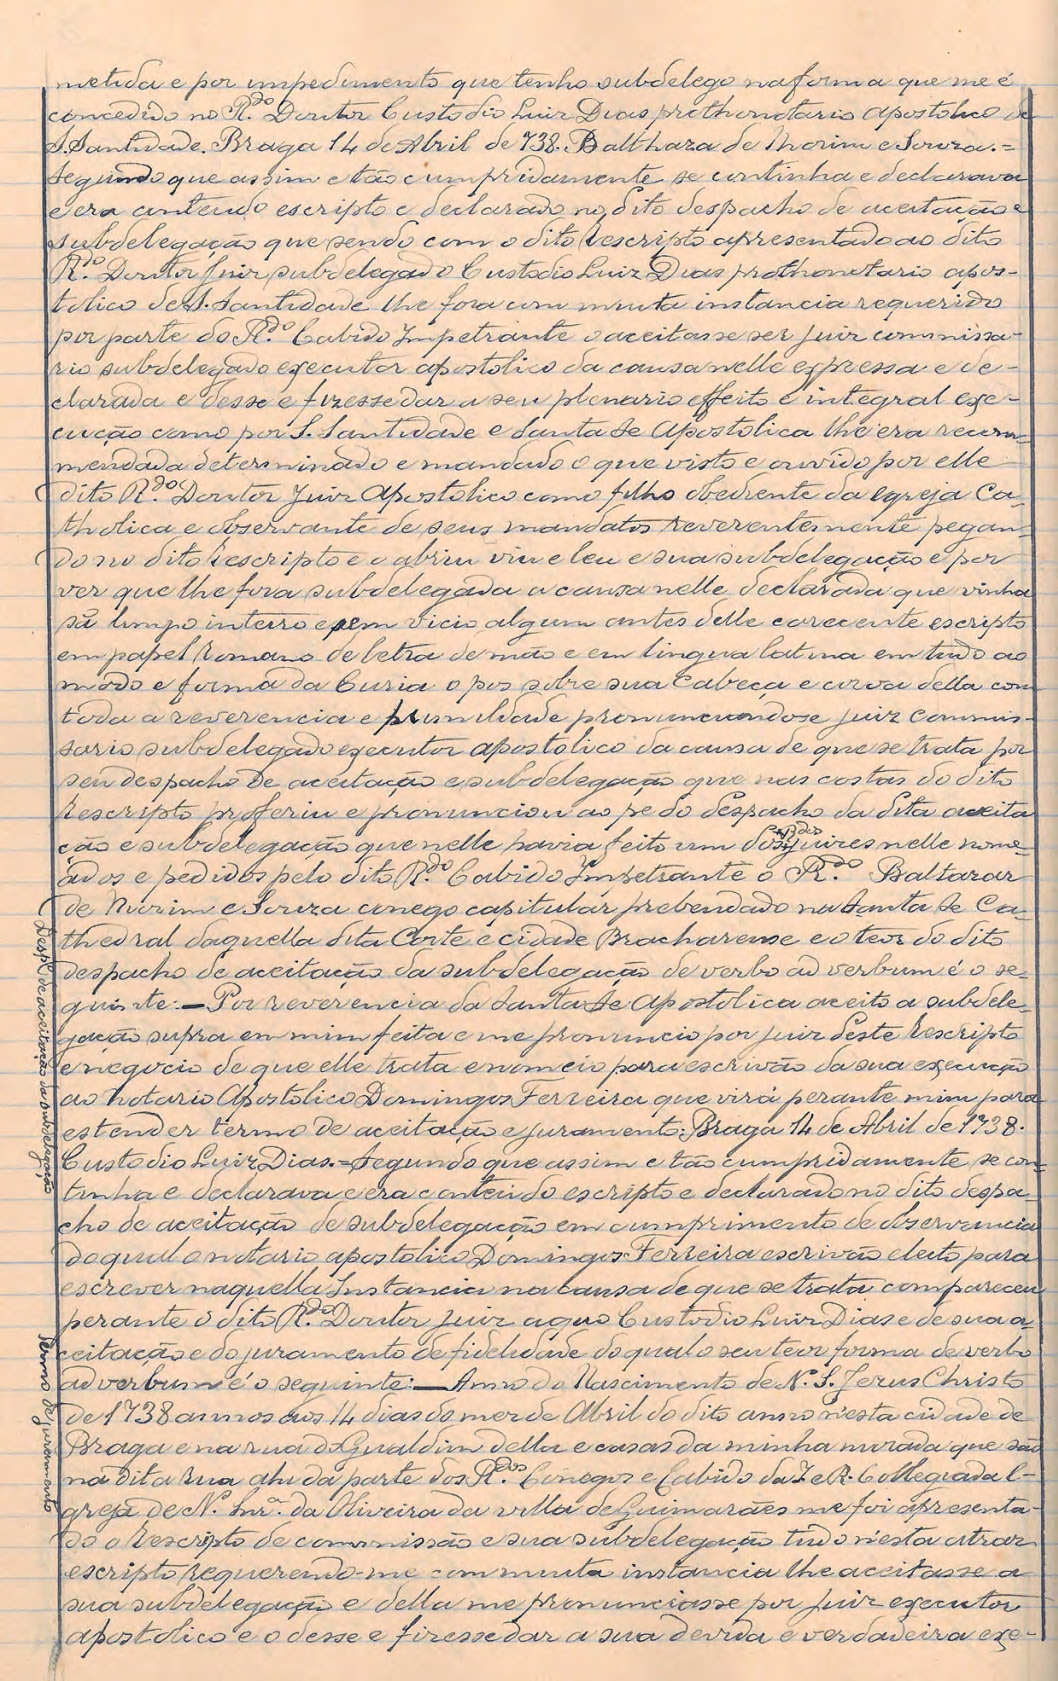 metida e por impedimento que tenho subdelego na forma que me é
concedido no R.do Doutor Custodio Luiz Dias prothonotario apostolico de
S. Santidade. Braga 14 de Abril de 738. Balthaza de Morim e Souza.=
Segundo que assim e tão cumpridamente se continha e declarava
e era contendo escripto e declarado no dito despacho de aceitação e
subdelegação que sendo com o dito Rescripto apresentado ao dito
R.do Doutor Juiz subdelegado Custodio Luiz Dias prothonotario apos-
tolico de S. Santidade lhe fora com muita instancia requerido
por parte do R.do Cabido Impetrante o aceitasse ser Juiz commissa-
rio subdelegado executor apostolico da causa nelle expressa e de-
clarada e desse e fizesse dar a seu plenario effeito e integral exe-
cução como por S. Santidade e Santa Se Apostolica lhe era recom-
mendada determinado e mandado o que visto e ouvido por elle
dito R.do Doutor Juiz Apostolico como filho obediente da egreja Ca-
tholica e observante de seus mandatos reverentemente pegan-
do no dito Rescripto e o abriu viu e leu e sua subdelegação e por
ver que lhe fora subdelegada a causa nelle declarada que vinha
sã limpo inteiro e sem vicio algum antes delle carecente escripto
em papel Romano de letra de mão e em lingua latina em tudo ao
modo e forma da Curia o pos sobre sua Cabeça e coroa della com
toda a reverencia e humildade pronunciandose juiz commis-
sario subdelegado executor apostolico da causa de que se trata por
seu despacho de aceitação e subdelegação que nas costas do dito
Rescripto proferiu e pronunciou ao pe do despacho da dita aceita
ção e subdelegação que nelle havia feito um dos juizes nelle nome-
ados e pedidos pelo dito R.do Cabido Impetrante o R.do Baltazar
de Morim e Souza conego capitular prebendado na Santa Se Ca-
thedral daquella dita Corte e cidade Bracharense e o teor do dito
despacho de aceitação da subdelegação de verbo ad verbum é o se-
guinte:—Por reverencia da Santa Se Apostolica aceito a subdele-
gação supra em mim feita e me pronuncio por juiz deste Rescripto
e negocio de que elle trata e nomeio para escrivão da sua execução
ao notario Apostolico Domingos Ferreira que virá perante mim para
estender termo de aceitação e juramento: Braga 14 de Abril de 1738.
Custodio Luiz Dias.=Segundo que assim e tão cumpridamente se con-
tinha e declarava e era conteúdo escripto e declarado no dito despa-
cho de aceitação de subdelegação em cumprimento de observancia
do qual o notario apostolico Domingos Ferreira escrivão eleito para
escrever naquella Instancia na causa de que se trata compareceu
perante o dito R.do Doutor Juiz a quo Custodio Luiz Dias e de sua a-
ceitação e do juramento de fidelidade do qual o seu teor forma de verbo
ad verbum é o seguinte:—Anno do Nascimento de N. S. Jesus Christo
de 1738 annos aos 14 dias do mez de Abril do dito anno n'esta cidade de
Braga e na rua do Gualdim della e casas da minha morada que são
na dita Rua ahi da parte dos R.dos Conegos e Cabido da I. e R. Collegiada I-
greja de N. Snr.a da Oliveira da villa de Guimarães me foi apresenta-
do o Rescripto de commissão e sua subdelegação tudo n'esta atraz
escripto requerendo-me com muita instancia lhe aceitasse a
sua subdelegação e della me pronunciasse por juiz executor
apostolico e o desse e fizesse dar a sua devida e verdadeira exe-
Desp.º de aceitação da Subdelegação
Termo de juramento